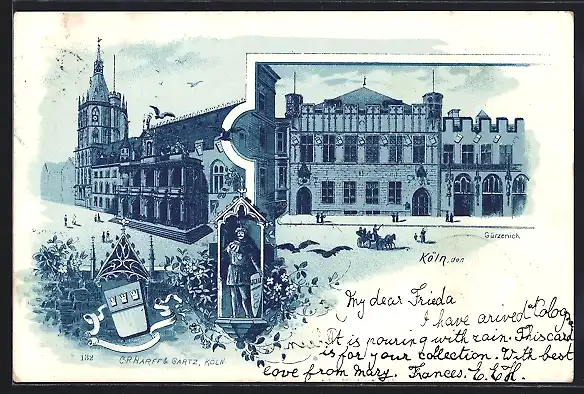 Gürzenich
Köln, den
My dear Frieda
I have arived Cologn
It is pouring with rain. This card
is for your collection. With best
love from Mary. Frances. E.C.H.
132 C.P. HARFF & GARTZ, KÖLN